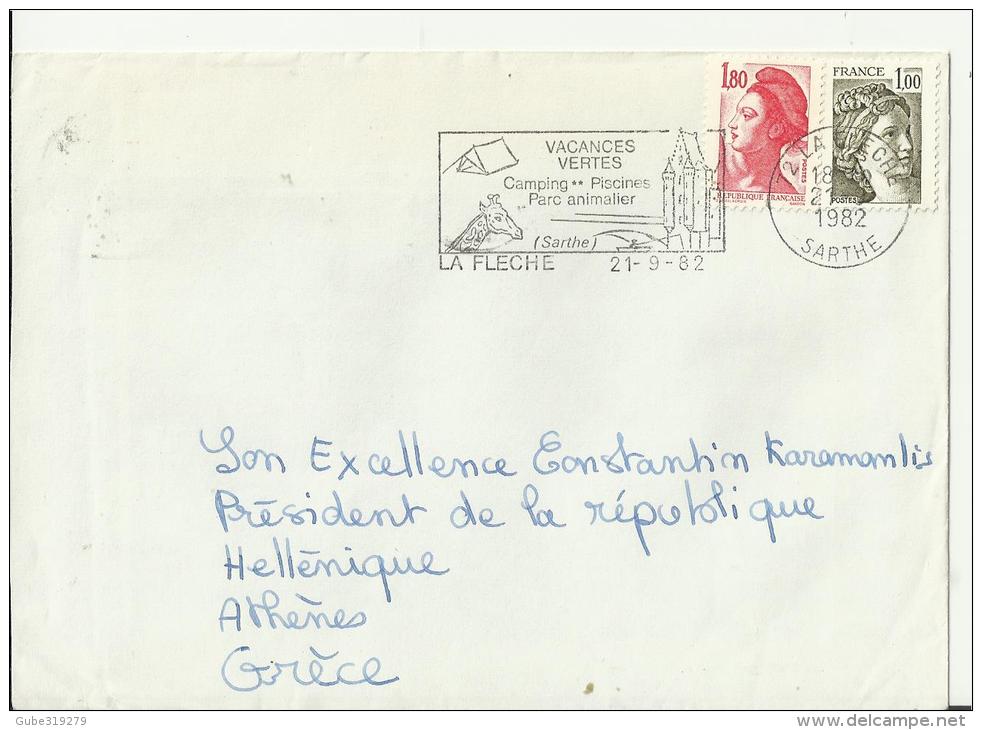 1,80
RÉPUBLIQUE FRANÇAISE
POSTES
FRANCE 1,00
POSTES
VACANCES
VERTES
Camping ** Piscines
Parc animalier
(Sarthe)
LA FLECHE 21-9-82
LA FLECHE
1982
SARTHE
Son Excellence Constantin Karamanlis
Président de la république
Hellènique
Athènes
Grèce
Gube319279
delcampe.net